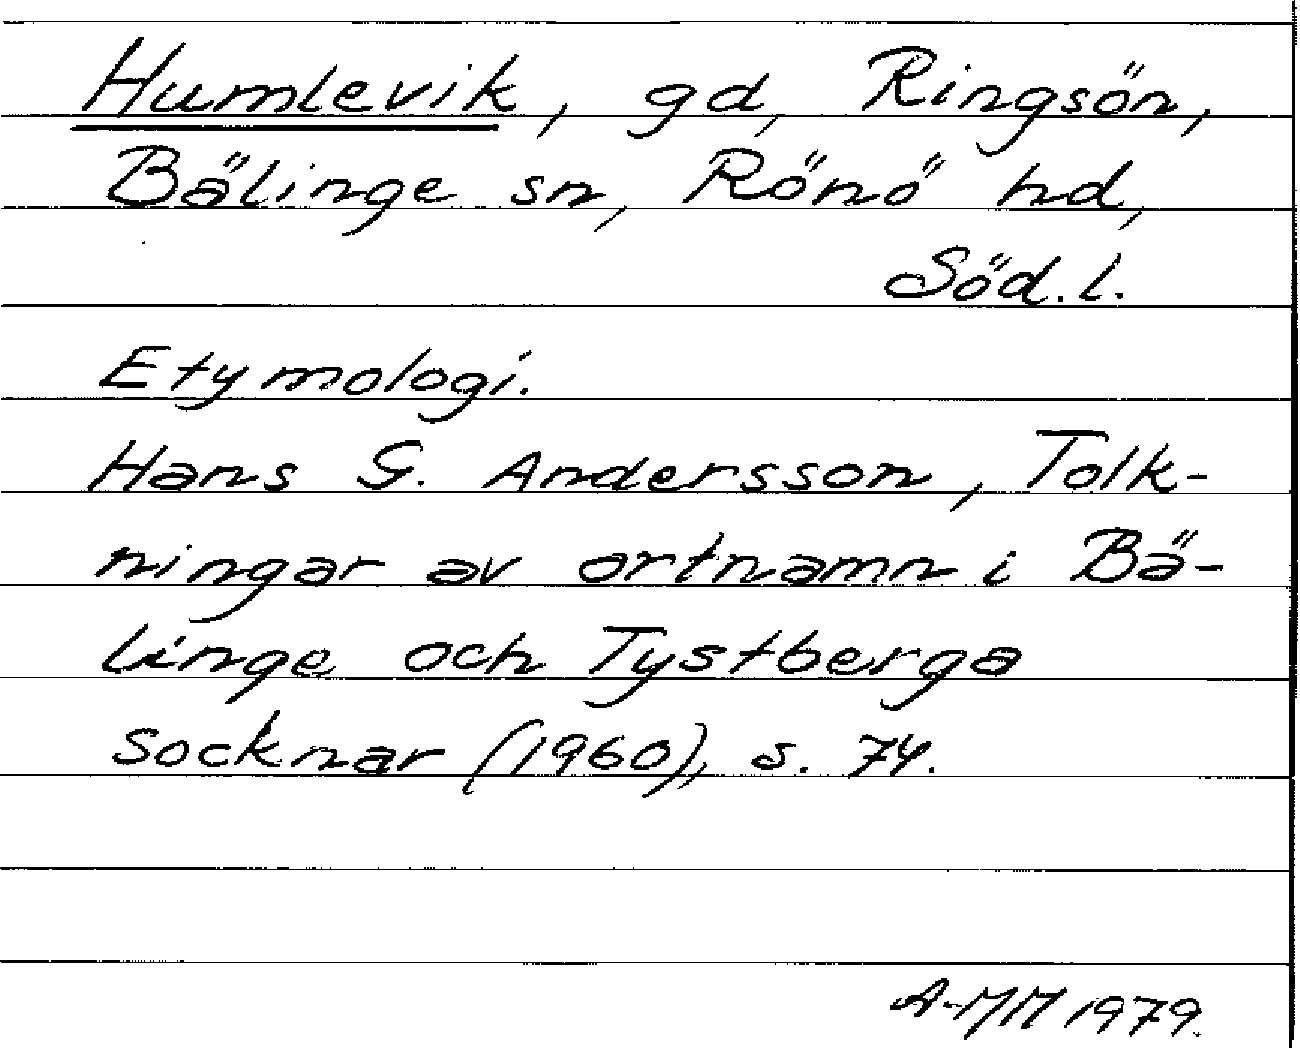 Humlevik, gd, Ringsön,
Bälinge sn, Rönö hd,
Söd.l.
Etymologi.
Hans G. Andersson, Tolk-
ningar av ortnamn i Bä-
linge och Tystberga
socknar (1960), s. 74.
A-MM 1979.